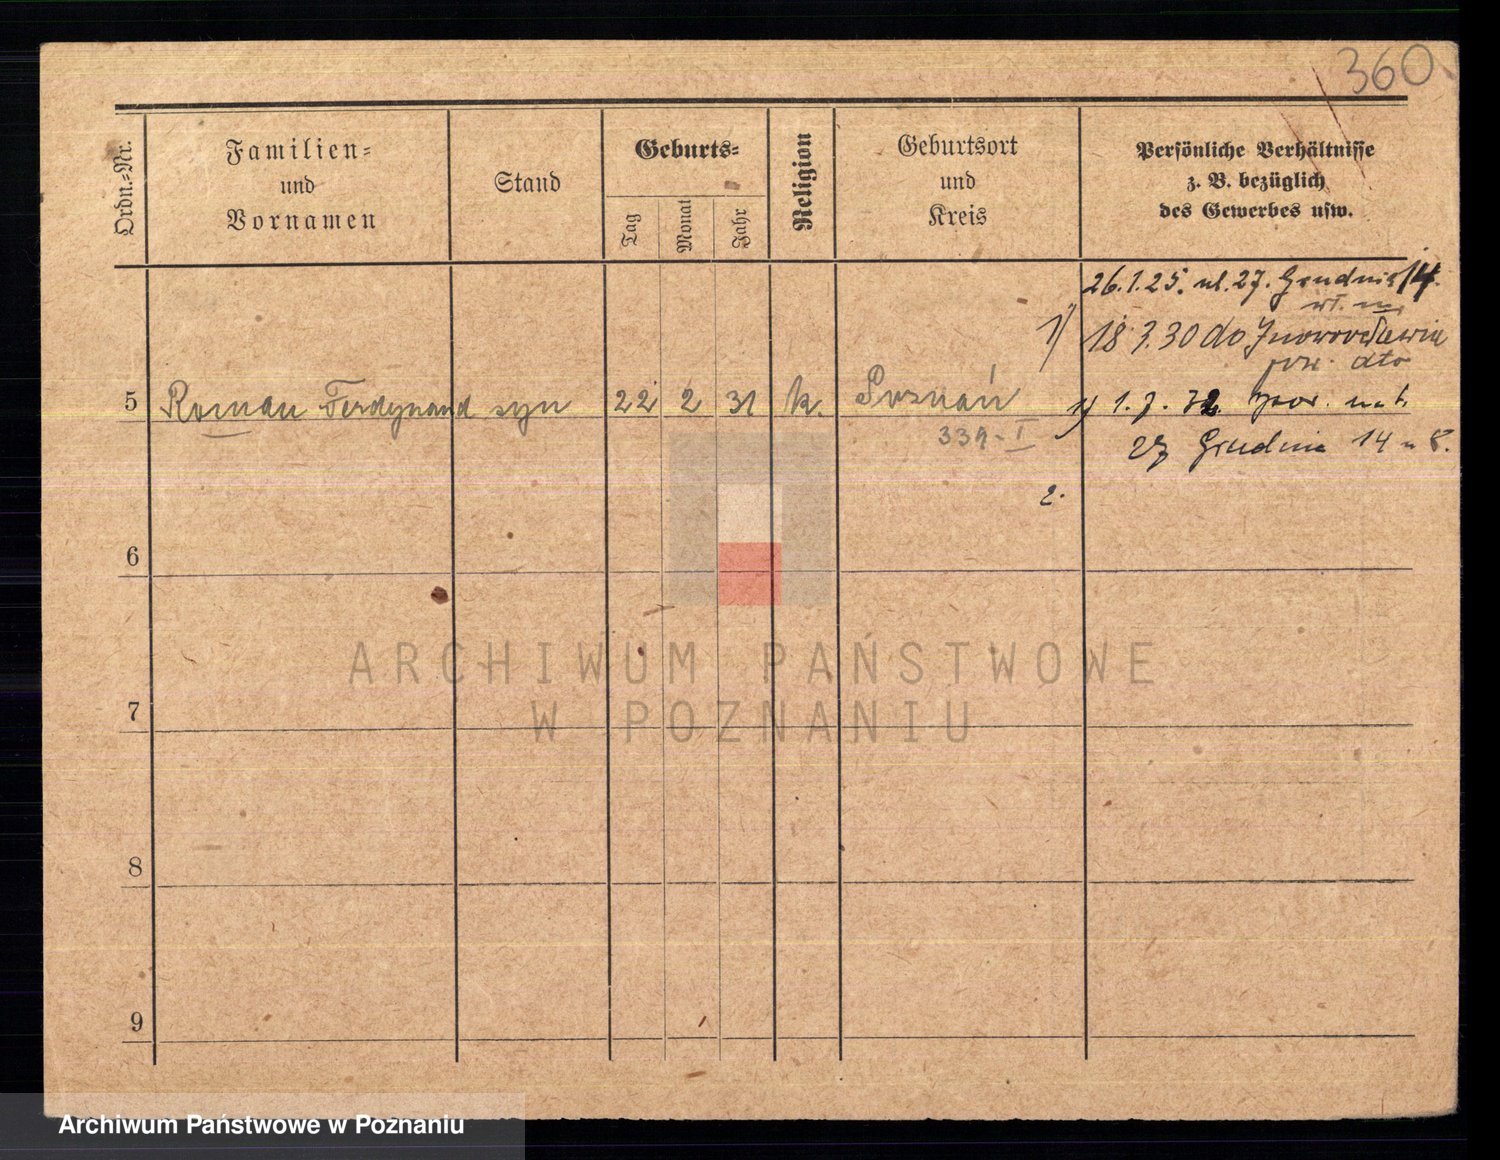 360
Ordn.-Nr.
Familien-
und
Vornamen
Stand
Geburts-
Tag
Monat
Jahr
Religion
Geburtsort
und
Kreis
Persönliche Verhältnisse
z. B. bezüglich
des Gewerbes usw.
26.1.25. ul. 27. Grudnia 14.
1) 18.3.30 do Inowrocławia
5 Roman Ferdynand syn 22 2 31 k. Poznań
1) 1. 7. 32.
339-I
27 Grudnia 14 8.
2.
6
7
8
9
ARCHIWUM PAŃSTWOWE
W POZNANIU
Archiwum Państwowe w Poznaniu